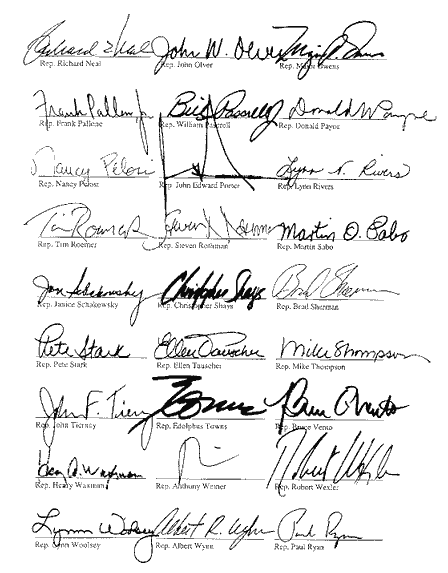 Richard Neal John W. Olver Major R. Owens
Rep. Richard Neal Rep. John Olver Rep. Major Owens
Frank Pallone Jr. Bill Pascrell Donald M Payne
Rep. Frank Pallone Rep. William Pascroll Rep. Donald Payne
Nancy Pelosi Lynn N. Rivers
Rep. Nancy Pelosi Rep. John Edward Porter Rep. Lynn Rivers
Tim Roemer Steven Rothman Martin O. Sabo
Rep. Tim Roemer Rep. Steven Rothman Rep. Martin Sabo
Jan Schakowsky Christopher Shays Brad Sherman
Rep. Janice Schakowsky Rep. Christopher Shays Rep. Brad Sherman
Pete Stark Ellen Tauscher Mike Thompson
Rep. Pete Stark Rep. Ellen Tauscher Rep. Mike Thompson
John F. Tierney Towns Bruce Vento
Rep. John Tierney Rep. Edolphus Towns Rep. Bruce Vento
Henry A. Waxman Robert Wexler
Rep. Henry Waxman Rep. Anthony Weiner Rep. Robert Wexler
Lynn Woolsey Albert R. Wynn Paul Ryan
Rep. Lynn Woolsey Rep. Albert Wynn Rep. Paul Ryan